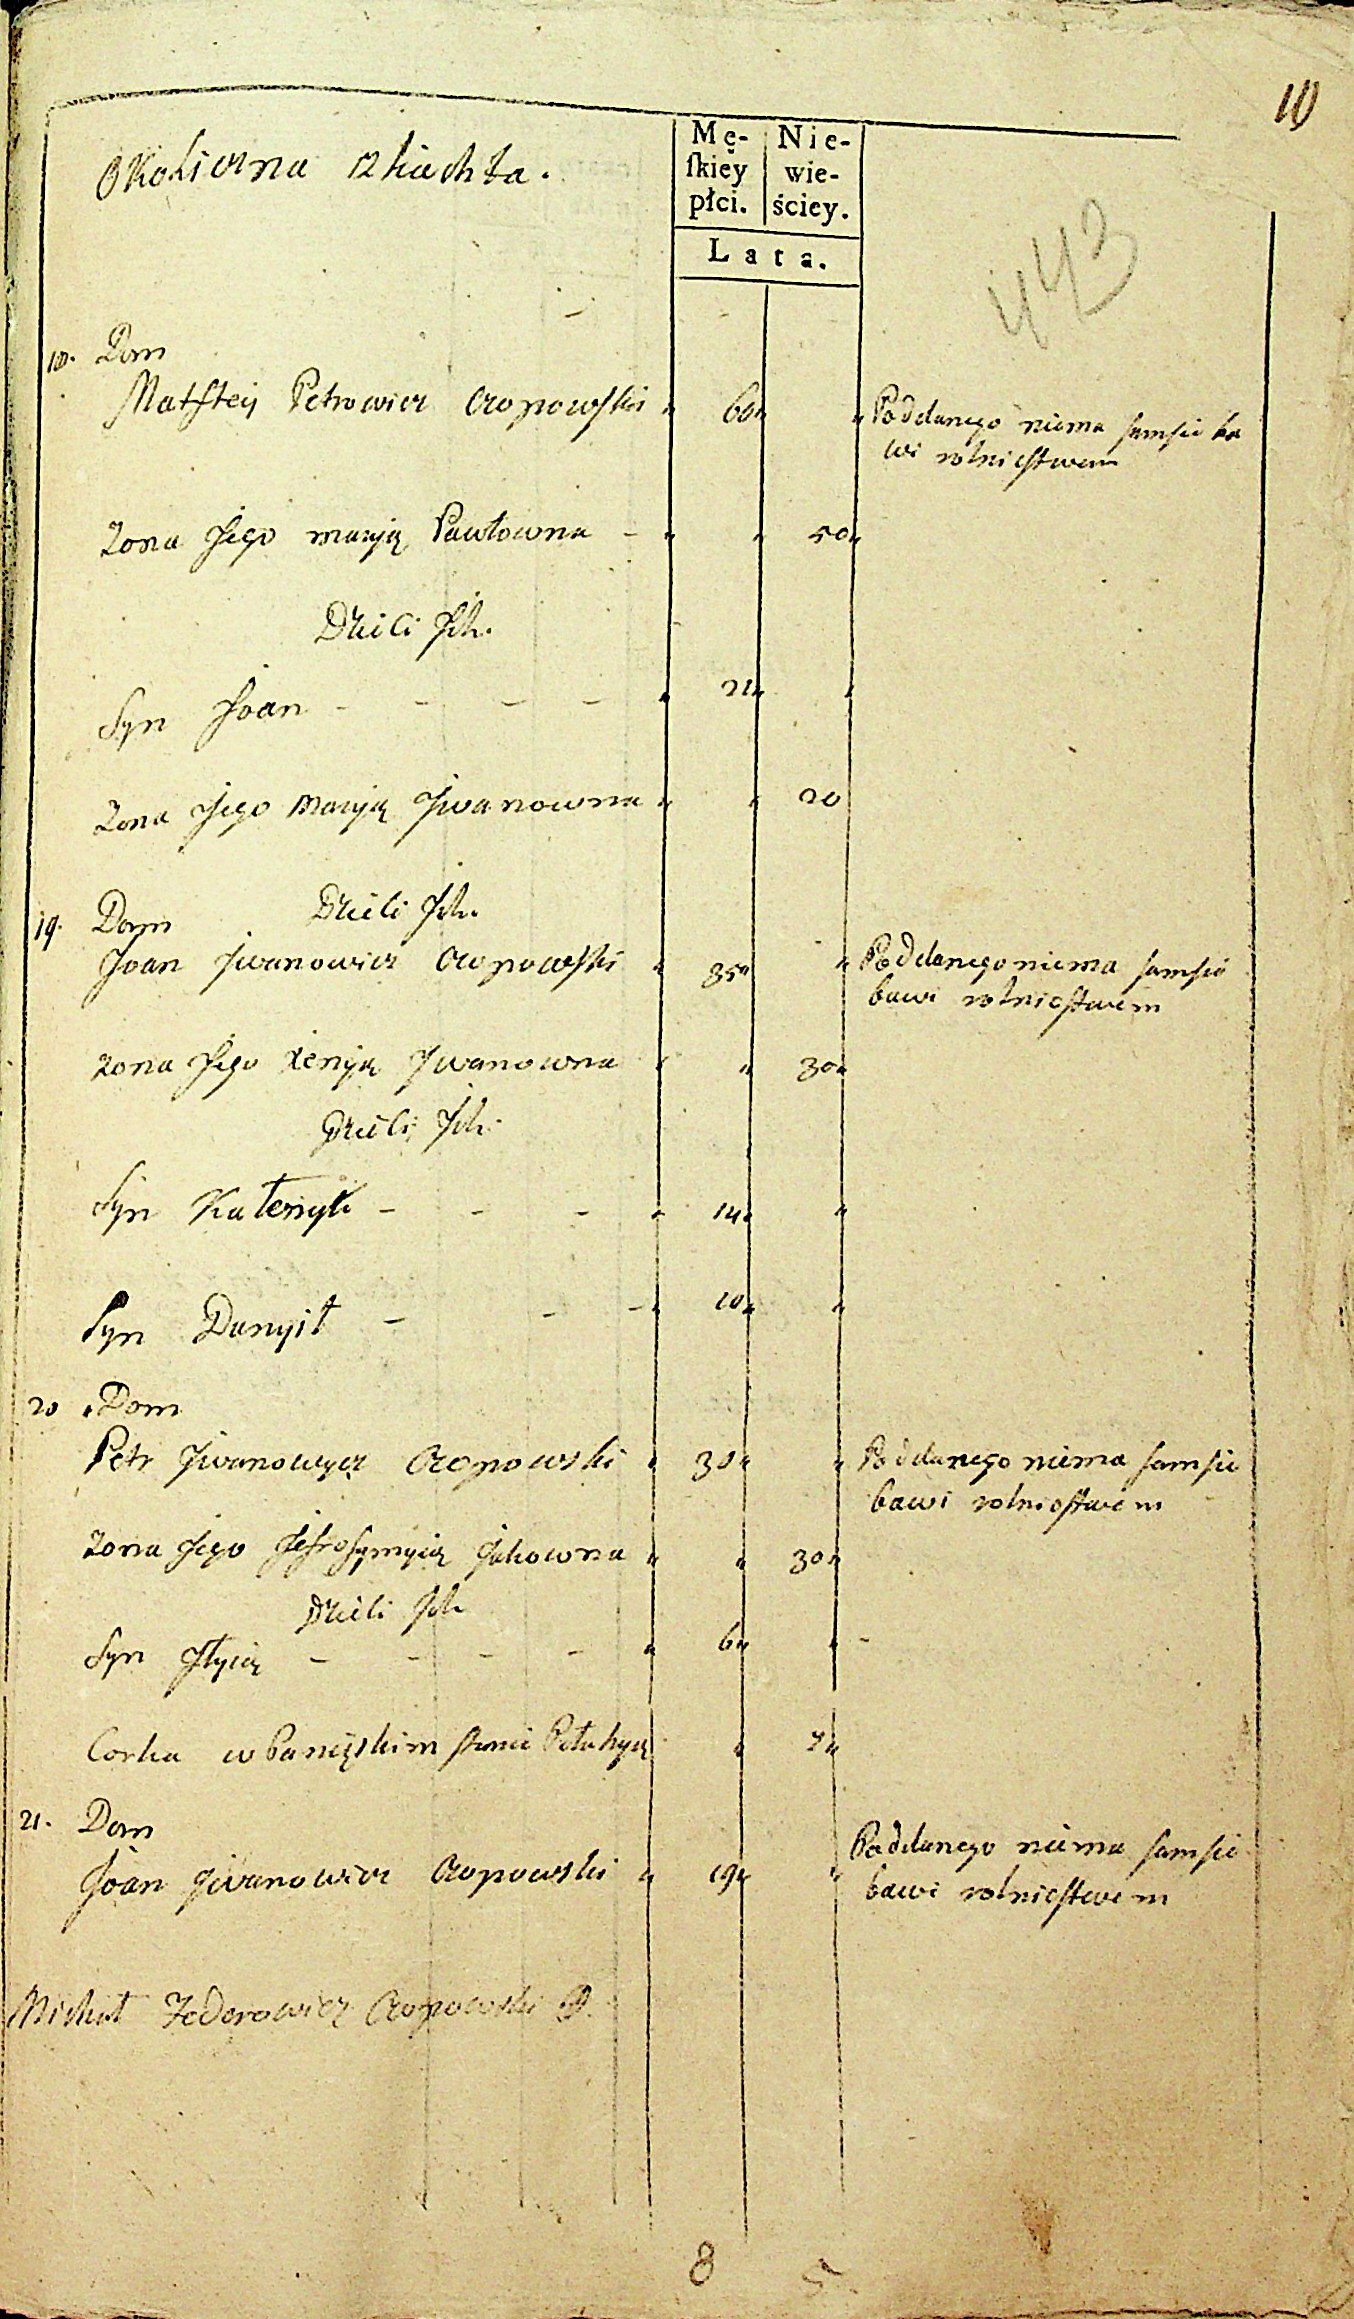 10
Okoliczna szlachta.
Mę-
ſkiey
płci.
Nie-
wie-
ściey.
Lata.
443
18. Dom
Matftey Petrowicz Czopowſki " 60 " " Poddanego niema samsie ba
wi rolnictwem
Zona Jego maryią Pawłowna - " " 50 "
Dzieci Jch.
Syn Joan - - - - " 21 " "
Zona Jego maryią Jwanowna " " 20
Dzieci Jch.
19. Dom
Joan Jwanowicz Czopowſki " 35 " " Poddanego niema samsie
bawi rolnictwem
zona Jego xenyią Jwanowna " " 30 "
Dzieci Jch.
Syn - - - " 14 " "
Syn Danyił - - - " 10 " "
20 Dom
Petr Jwanowycz Czopowski " 30 " " Poddanego niema samsie
bawi rolnictwem
Zona Jego Jefrosymyią Jakowna " " 30 "
Dzieci Jch
Syn Jłyią - - - - " 6 " " -
Corka w Panięskim stanie Pełahyią " 7 "
21. Dom
Joan Jwanowicz Czopowski " 19 " " Poddanego niema samsie
bawi rolnictwem
Michał Fedorowicz Czopowski
8 5